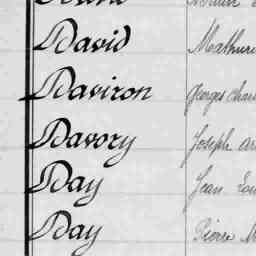 David Mathuri
Daviron Georges Char
Davory Joseph
Day Jean
Day Pierre M